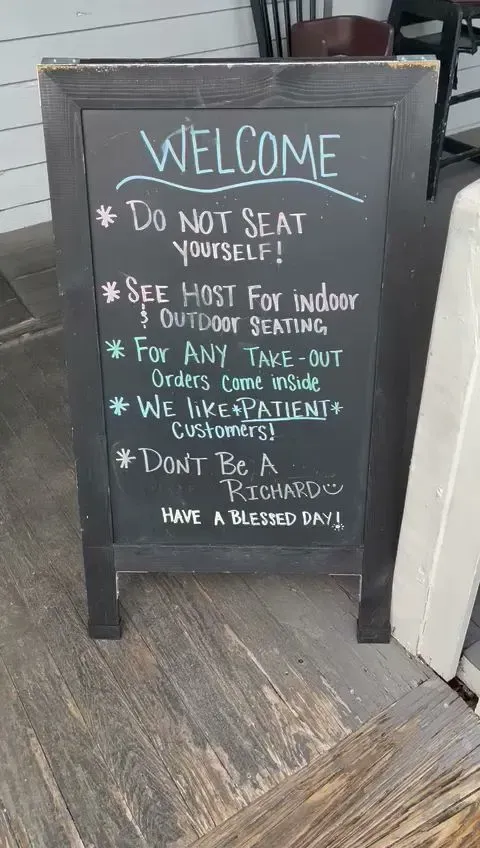 WELCOME
* Do NOT SEAT
yourSELF!
* SEE HOST For indoor
& OUTDoor SEATING
* For ANY TAKE-OUT
Orders come inside
* WE like *PATIENT*
customers!
* DON'T Be A
RICHARD
HAVE A BLESSED DAY!